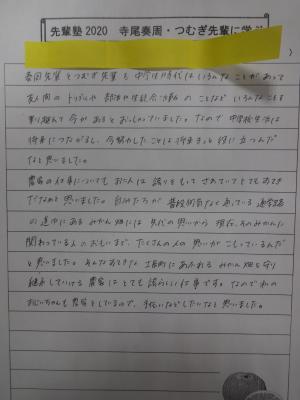 先輩塾2020 寺尾奏周・つむぎ先輩に学
先輩とつむぎ先輩も中学生時代はいろんなことがあって
友人間のトラブルや部活や生徒会活動のことなどいろんなことを
乗り越えて今があるとおっしゃっていました。なので中学校生活は
将来につながるし、今努力したことは将来きっと役に立つんだ
なと思いました。
農家の仕事についてもお二人は誇りをもってされていてとてもすてき
だなぁと思いました。自分たちが普段何気なく歩いている通学路
の途中にあるみかん畑には先代の思いから現在、そのみかんに
関わっている人のおもいまで、たくさんの人の思いがこもっているんだ
と思いました。そんなすてきな
みかん畑を守り
継承していける農家はとても誇らしい仕事です。なので私の
おじいちゃんも農家をしているので、手伝いなどしたいなと思いました。